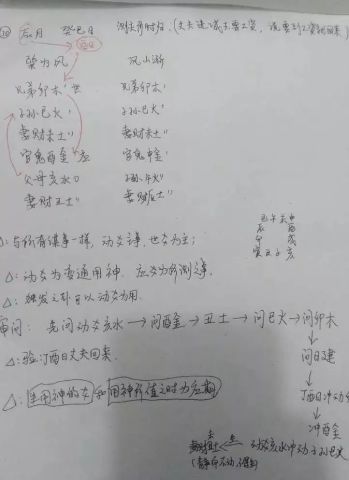 ⑩ 辰月 癸巳日 测丈夫何时归.(丈夫建城去要工资,
巽为风 风山渐
兄弟卯木' 世 兄弟卯木'
子孙巳火' 子孙巳火'
妻财未土" 妻财未土"
官鬼酉金' 应 官鬼申金'
父母亥水O 子孙午火"
妻财丑土" 妻财辰土"
巳午未申
辰 酉
卯 戌
寅丑子亥
△: 与所有谋事一样, 动爻之事, 世爻为主;
△: 动爻为变通用神, 应爻为所测之事.
△: 独发之卦自以动爻为用.
审问: 先问动爻亥水→问酉金→丑土→问巳火→问卯木
↓
问日建
△: 验: 丁酉日丈夫回来. ↓
丁酉日冲动
△: 生用神的爻和用神存值之时为应期 ↓
冲酉金
动爻亥水冲动子孙巳火
(静而不动,